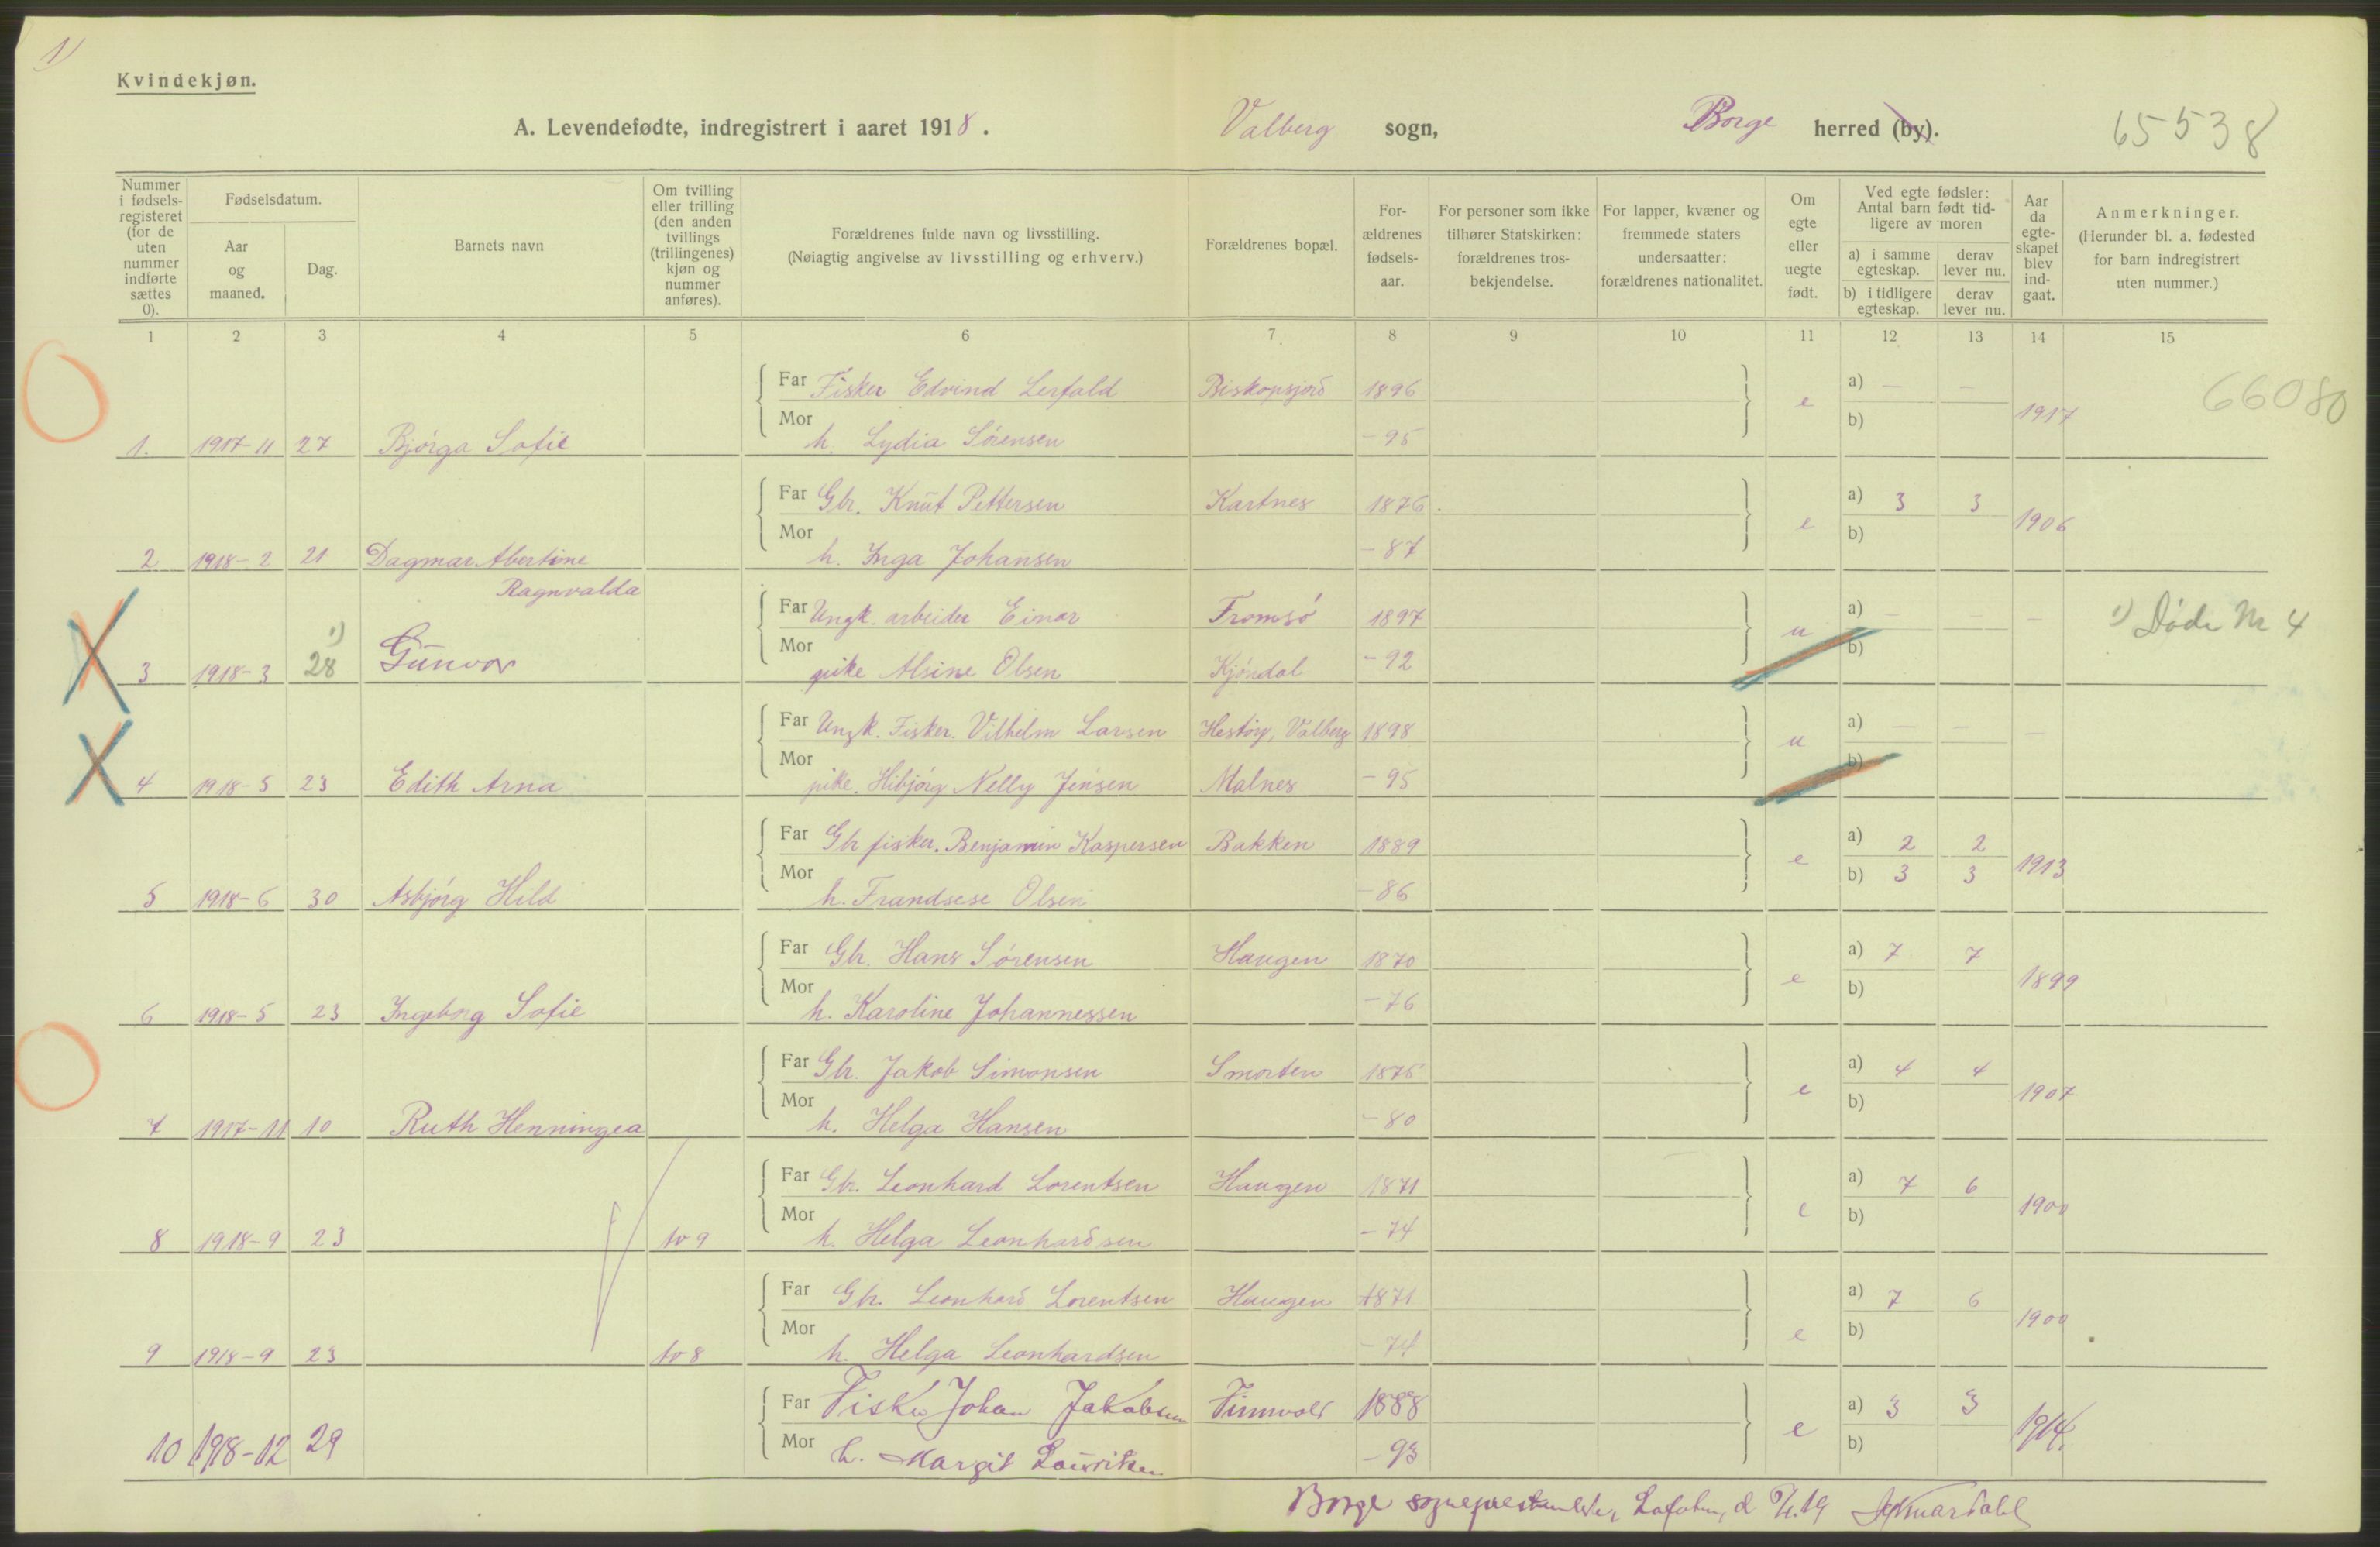 1)
Kvindekjøn.
A. Levendefødte, indregistrert i aaret 1918. Valberg sogn, Borge herred (by). 65538
Nummer i fødselsregisteret (for de uten nummer indførte sættes 0).
Fødselsdatum.
Aar og maaned.
Dag.
Barnets navn
Om tvilling eller trilling (den anden tvillings (trillingenes) kjøn og nummer anføres).
Forældrenes fulde navn og livsstilling.
(Nøiagtig angivelse av livsstilling og erhverv.)
Forældrenes bopæl.
Forældrenes fødselsaar.
For personer som ikke tilhører Statskirken: forældrenes trosbekjendelse.
For lapper, kvæner og fremmede staters undersaatter: forældrenes nationalitet.
Om egte eller uegte født.
Ved egte fødsler: Antal barn født tidligere av moren
a) i samme egteskap. derav lever nu.
b) i tidligere egteskap. derav lever nu.
Aar da egteskapet blev indgaat.
Anmerkninger.
(Herunder bl. a. fødested for barn indregistrert uten nummer.)
1 2 3 4 5 6 7 8 9 10 11 12 13 14 15
Far Fisker Edvind Lerfald Biskopsjord 1896 a) — —
66080
e 1917
Mor h. Lydia Sørensen -95 b)
1. 1917-11 27 Bjørga Sofie
Far Gbr. Knut Pettersen Kartnes 1876 a) 3 3
e 1906
Mor h. Inga Johansen -87 b)
2 1918-2 21 Dagmar Abertine
Ragnvalda
Far Ungk. arbeider Einar Tromsø 1897 a) — — —
1) Døde Nr 4
u
Mor pike Alsine Olsen Kjøndal -92 b)
3 1918-3 1) 28 Gunvor
Far Ungk. Fisker. Vilhelm Larsen Valberg 1898 a) — — —
u
Mor pike. Hibjørg Nelly Jensen Malnes -95 b)
4 1918-5 23 Edith Arna
Far Gbr fisker. Benjamin Kaspersen Bakken 1889 a) 2 2
e 1913
Mor h. Frandsese Olsen -86 b) 3 3
5 1918-6 30 Asbjørg Hild
Far Gbr. Hans Sørensen Haugen 1870 a) 7 7
e 1899
Mor h. Karoline Johannessen -76 b)
6 1918-5 23 Ingeborg Sofie
Far Gbr. Jakob Simonsen Smorten 1875 a) 4 4
e 1907
Mor h. Helga Hansen -80 b)
7 1917-11 10 Ruth Henningea
Far Gbr. Leonhard Lorentsen Haugen 1871 a) 7 6
e 1900
Mor h. Helga Leonhardsen -74 b)
8 1918-9 23 tv 9
Far Gbr. Leonhard Lorentsen Haugen 1871 a) 7 6
e 1900
Mor h. Helga Leonhardsen -74 b)
9 1918-9 23 tv 8
Far Fisker Johan Jakobsen 1888 a) 3 3
e 1914.
Mor h. Margit Lauritsen -93 b)
10 1918-12 29
Borge Lofoten, d